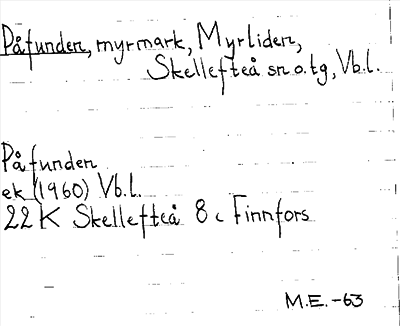 Påfunden, myrmark, Myrliden,
Skellefteå sn o. tg, Vb.l.
Påfunden
ek (1960) Vb.l.
22 K Skellefteå 8 c Finnfors
M.E. -63